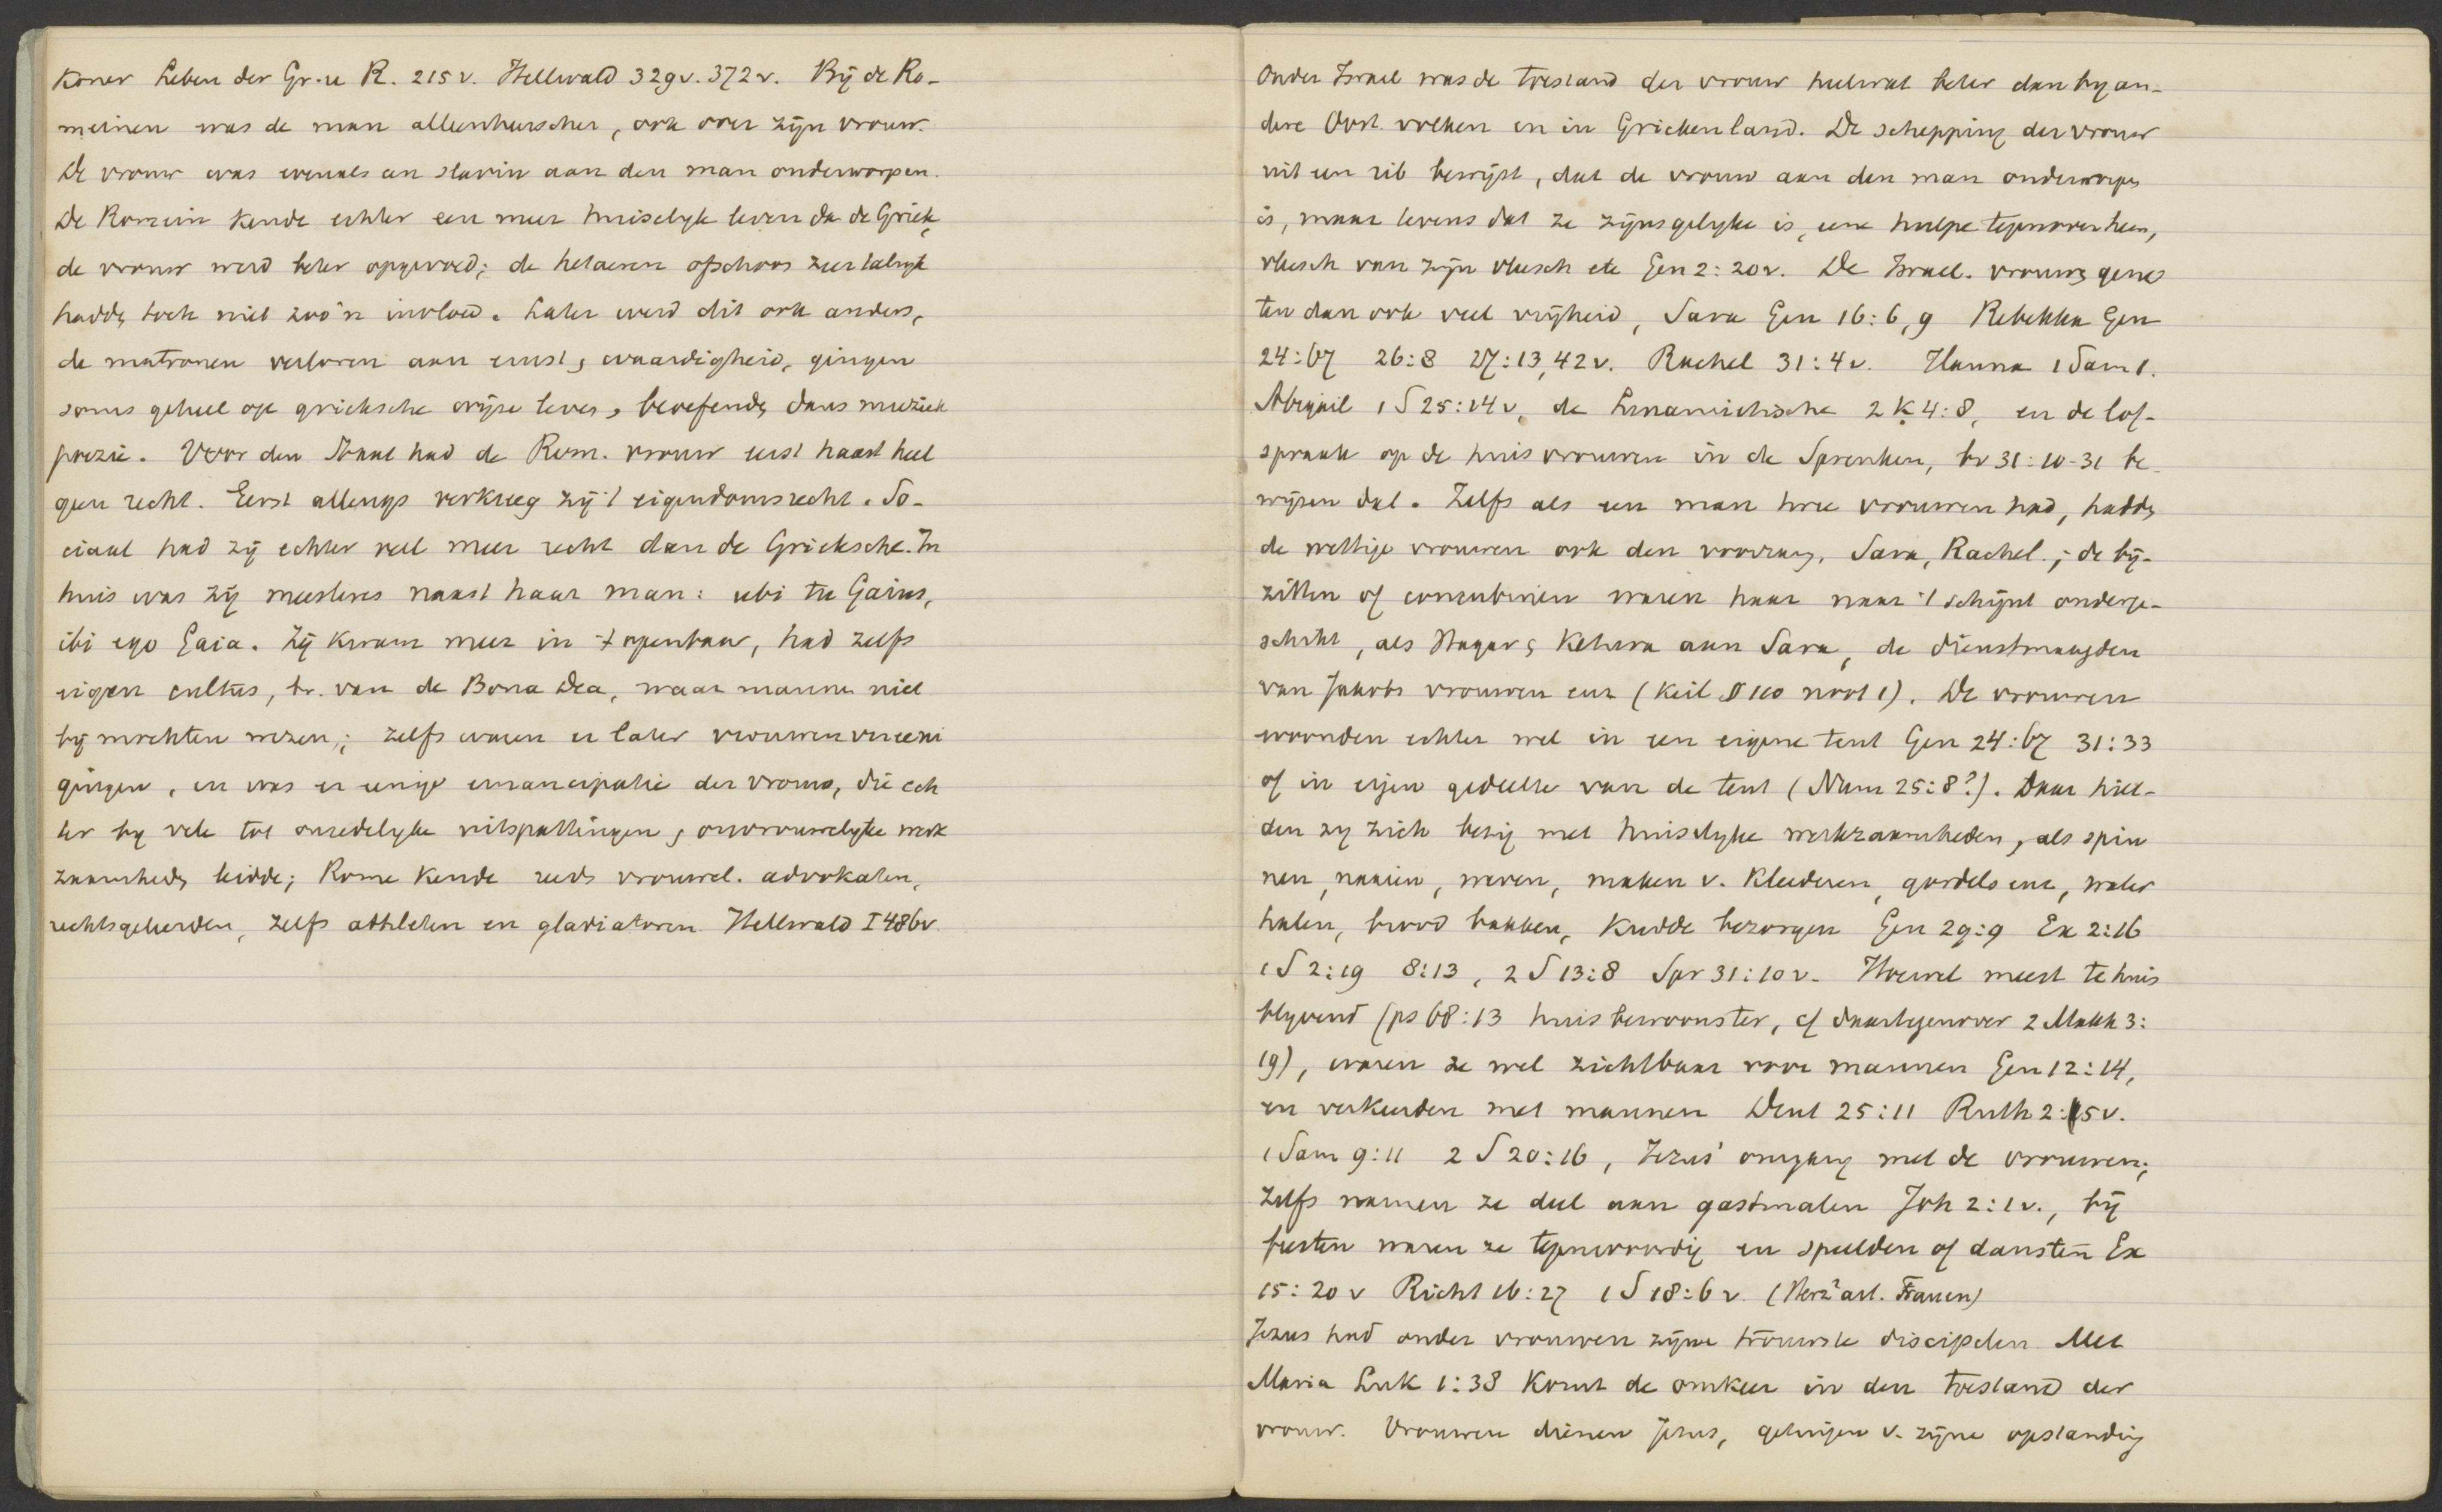 Koner Leben der Gr. u R. 215 v. Hellwald 329 v. 372 v. Bij de Ro-
meinen was de man alleenheerscher, ook over zijn vrouw.
De vrouw was evenals een slavin aan den man onderworpen.
De Romein kende echter een meer huiselyk leven dan de Griek,
de vrouw werd beter opgevoed; de hetaeren ofschoon zeer talryk
hadden toch niet zoo'n invloed. Later werd dit ook anders,
de matronen verloren aan ernst, waardigheid, gingen
soms geheel op grieksche wijze leven, beoefenden dans muziek
poezie. Voor den Staat had de Rom. vrouw eerst haast heel
geen recht. Eerst allengs verkreeg zij 't eigendomsrecht. So-
ciaal had zij echter veel meer recht dan de Grieksche. In
huis was zij meesteres naast haar man: ubi tu Gaius,
ibi ego Gaia. Zij kwam meer in 't openbaar, had zelfs
eigen cultus, bv. van de Bona Dea, waar mannen niet
bij mochten wezen; zelfs waren er later vrouwenvereeni
gingen, en was er eenige emancipatie der vrouw, die ech
ter by vele tot onzedelyke uitspattingen, onvrouwelyke werk
zaamheden leidde; Rome kende reeds vrouwel. advokaten,
rechtsgeleerden, zelfs athleten en gladiatoren. Hellwald I 486v
Onder Israel was de toestand der vrouw heelwat beter dan by an-
dere Oost. volken en in Griekenland. De schepping der vrouw
uit een rib bewijst, dat de vrouw aan den man onderworpen
is, maar tevens dat ze zijnsgelyke is, eene hulpe tegenover hem,
vleesch van zijn vleesch etc Gen 2:20v. De Israel. vrouwen geno
ten dan ook veel vrijheid, Sara Gen 16:6,9 Rebekka Gen
24:67 26:8 27:13,42v. Rachel 31:4v. Hanna 1 Sam 1.
Abigail 1 S 25:14v, de Sunamietische 2 K 4:8, en de lof-
spraak op de huisvrouwen in de Spreuken, bv 31:10-31 be-
wijzen dat. Zelfs als een man twee vrouwen had, hadden
de wettige vrouwen ook den voorrang, Sara, Rachel.; de bij-
zitten of concubinen waren haar naar 't schijnt onderge-
schikt, als Hagar, Ketura aan Sara, de dienstmaagden
van Jakobs vrouwen enz (Keil § 110 noot 1). De vrouwen
woonden echter wel in een eigene tent Gen 24:67 31:33
of in eigen gedeelte van de tent (Num 25:8?). Daar hiel-
den zy zich bezig met huiselyke werkzaamheden, als spin
nen, naaien, weven, maken v. Kleederen, gordels enz, water
halen, brood bakken, Kudde bezorgen Gen 29:9 Ex 2:16
1 S 2:19 8:13, 2 S 13:8 Spr 31:10v. Hoewel meest te huis
blyvend (ps 68:13 huisbewoonster, cf daartegenover 2 Makk 3:
19), waren ze wel zichtbaar voor mannen Gen 12:14,
en verkeerden met mannen Deut 25:11 Ruth 2:5v.
1 Sam 9:11 2 S 20:16, Jezus' omgang met de vrouwen;
zelfs namen ze deel aan gastmalen Joh 2:1v., bij
feesten waren ze tegenwoordig en speelden of dansten Ex
15:20v Richt 16:27 1 S 18:6v. (Herz² art. Frauen)
Jezus had onder vrouwen zijne trouwste discipelen. Met
Maria Luk 1:38 Komt de omkeer in den toestand der
vrouw. Vrouwen dienen Jezus, getuigen v. zijne opstanding